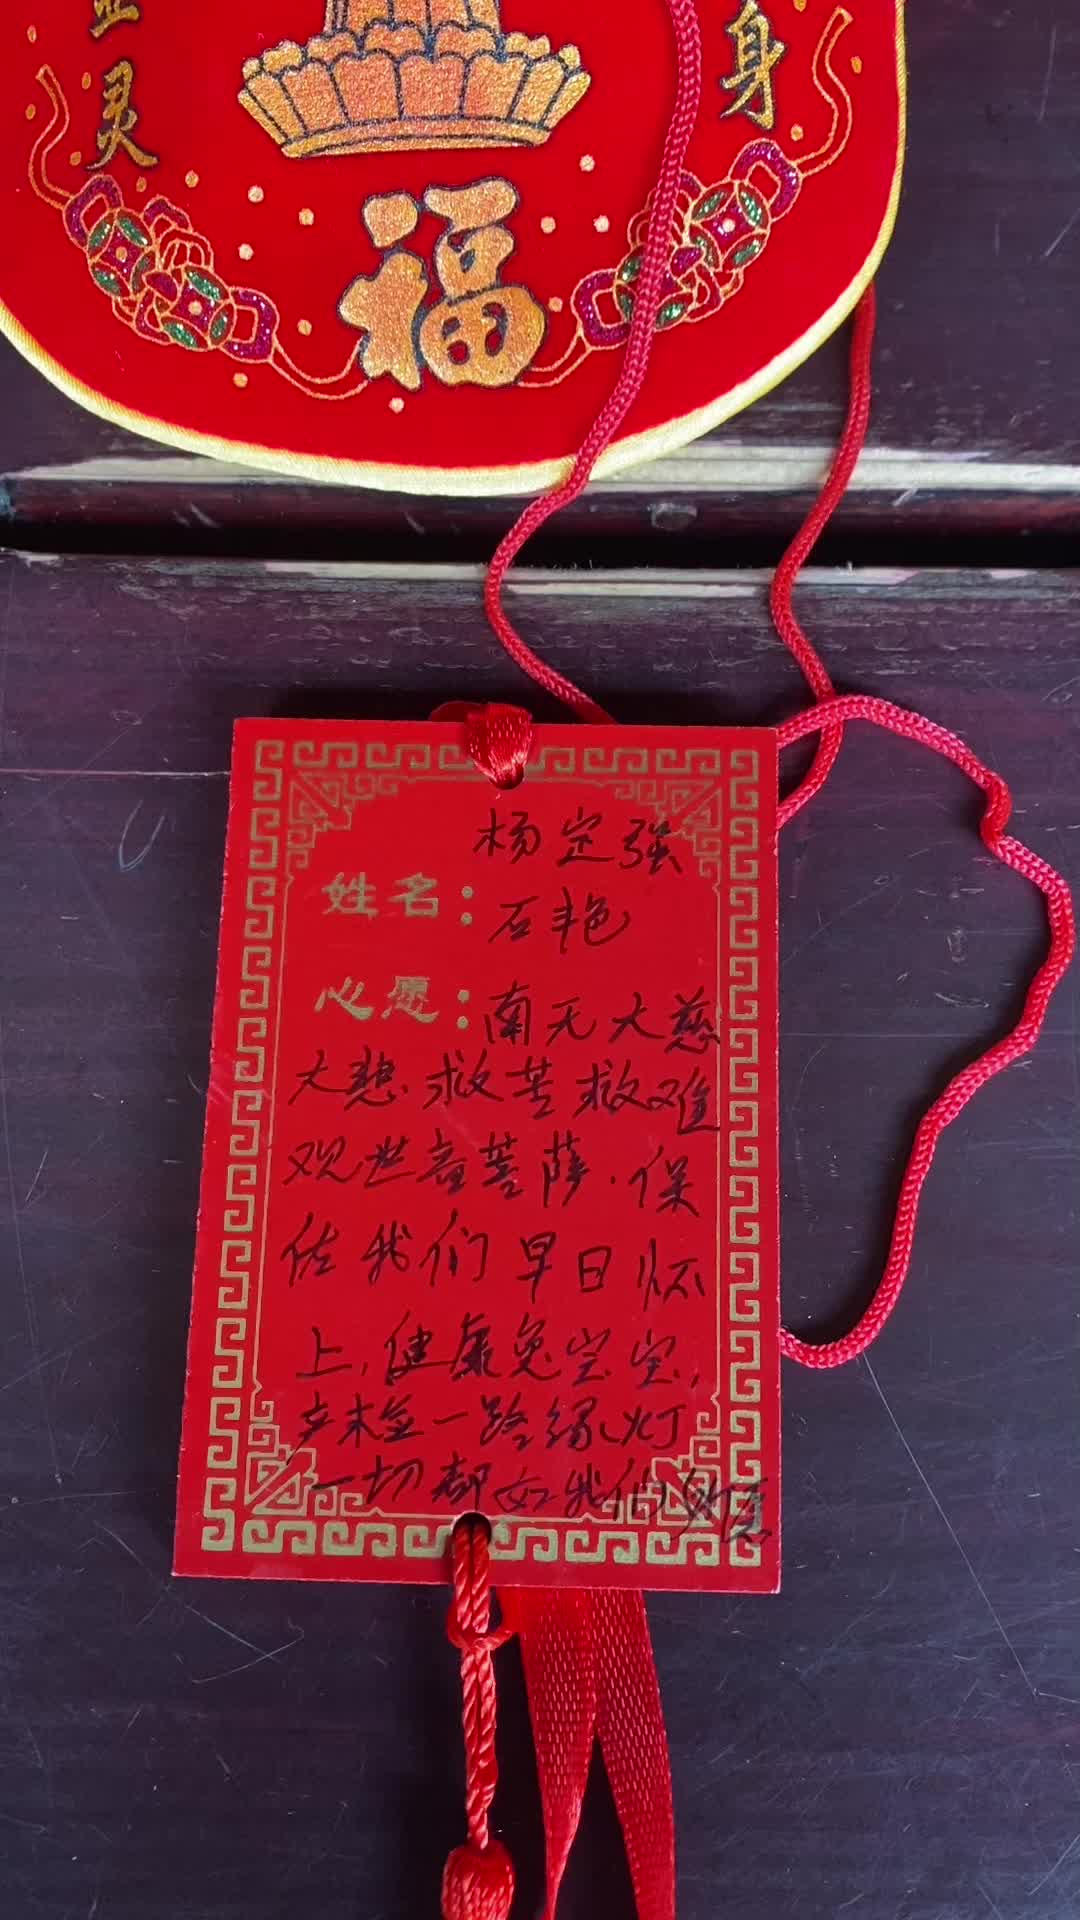 灵
身
福
杨定强
姓名：
石艳
心愿：南无大慈
大悲.救苦救难
观世音菩萨.保
佑我们早日怀
上,健康兔宝宝,
产检一路绿灯
一切都如我们所愿